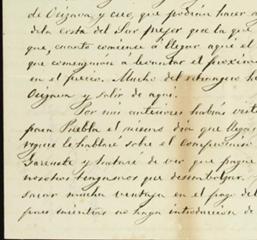 de Orizava, y creo, que podrian hacer a
dela costa del Sur mejor que la que
que, cuanto comience á llegar aqui el
que comenzarán a levantar el proximo
en el precio. Mucho del
Orizava y salir de aqui.
Por mis anteriores habrás visto
para Puebla el mismo dia que llegas
le hablaré sobre el
y trataré de ver que pague
nosotros tengamos que desembolsar.
sacar mucha ventaja en el pago del
pues mientras no haya introduccion de